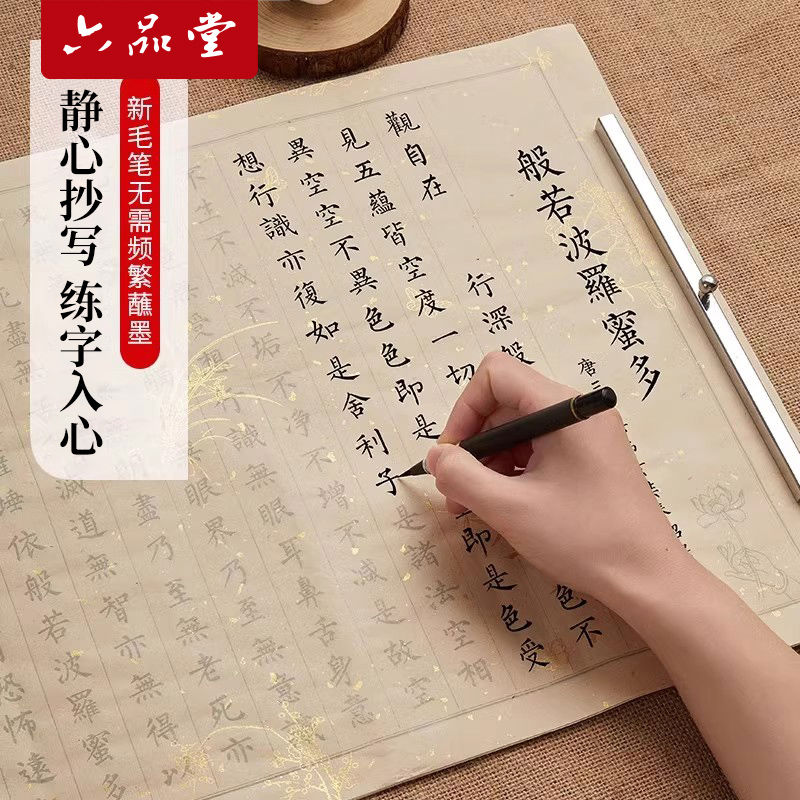 六品堂
静心抄写 练字入心
新毛笔无需频繁蘸墨
般若波羅蜜多
唐三
觀自在 行深般
見五蘊皆空度一切 色不
異空空不異色色即是 即是色受
想行識亦復如是舍利子是諸法空相
不生不滅不垢不淨不增不減是故空
受想行識無眼耳鼻舌身意
無眼界乃至無意識
明盡乃至無老死亦
滅道無智亦無得
埵依般若波羅蜜多
恐怖遠